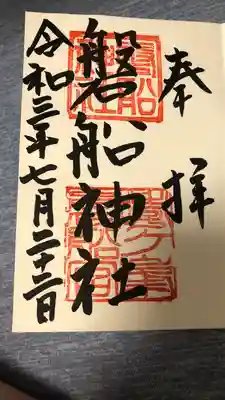 奉拝
磐船神社
令和三年七月二十二日